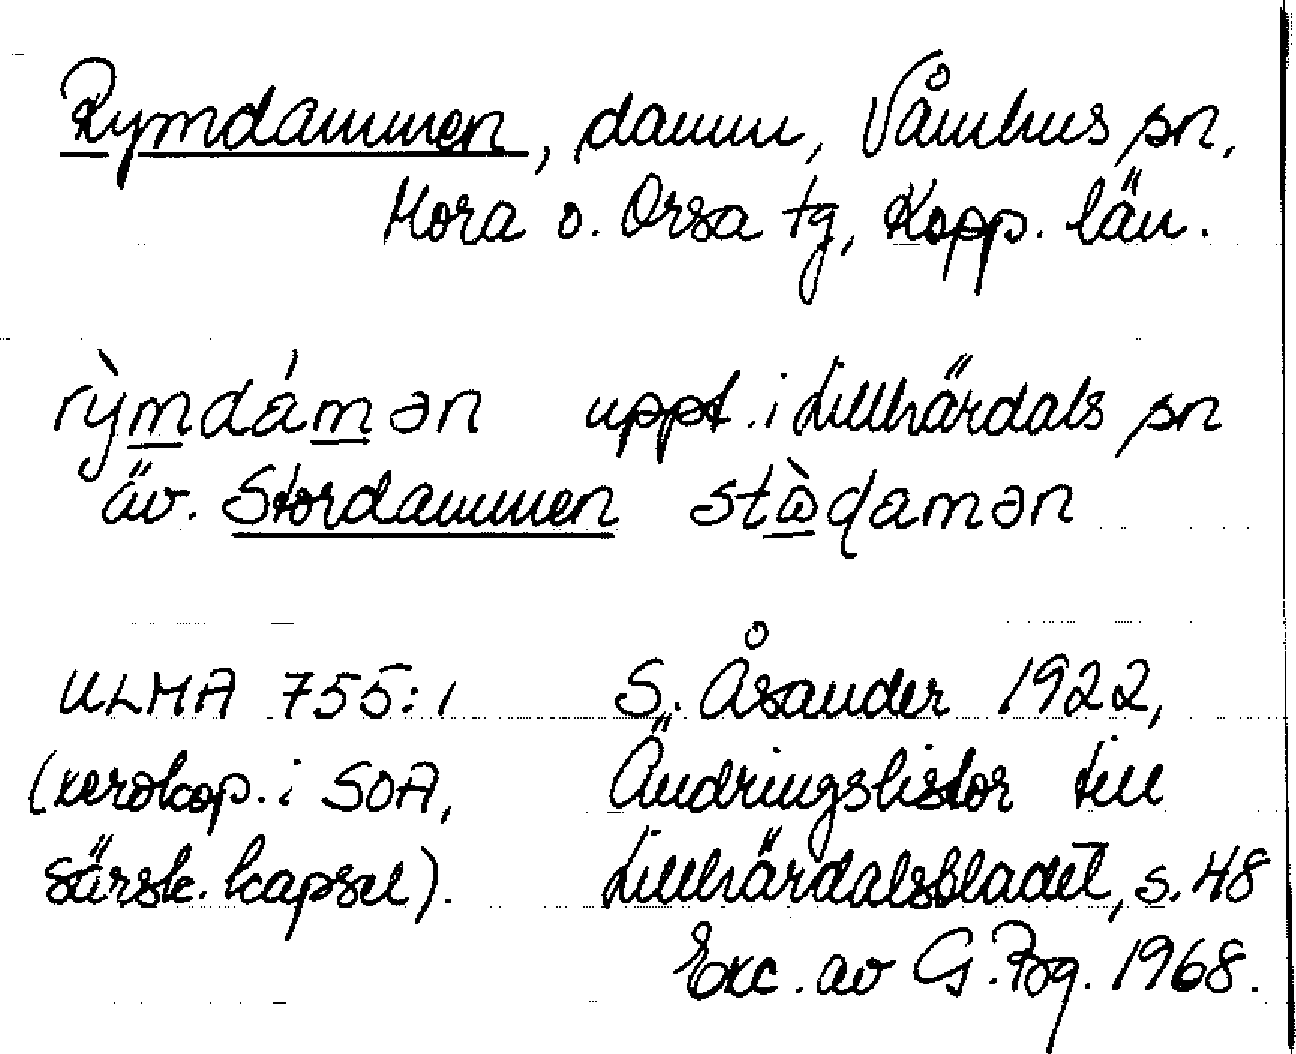 Rymdammen, damm, Våmhus sn,
Mora o. Orsa tg, Kopp. län.
rỳmdámən uppt. i Lillhärdals sn
äv. Stordammen
ULMA 755:1 S. Åsander 1922,
(xerokop. i SOA, Ändringslistor till
särsk. kapsel). Lillhärdalsbladet, s. 48
Exc. av G. 1968.